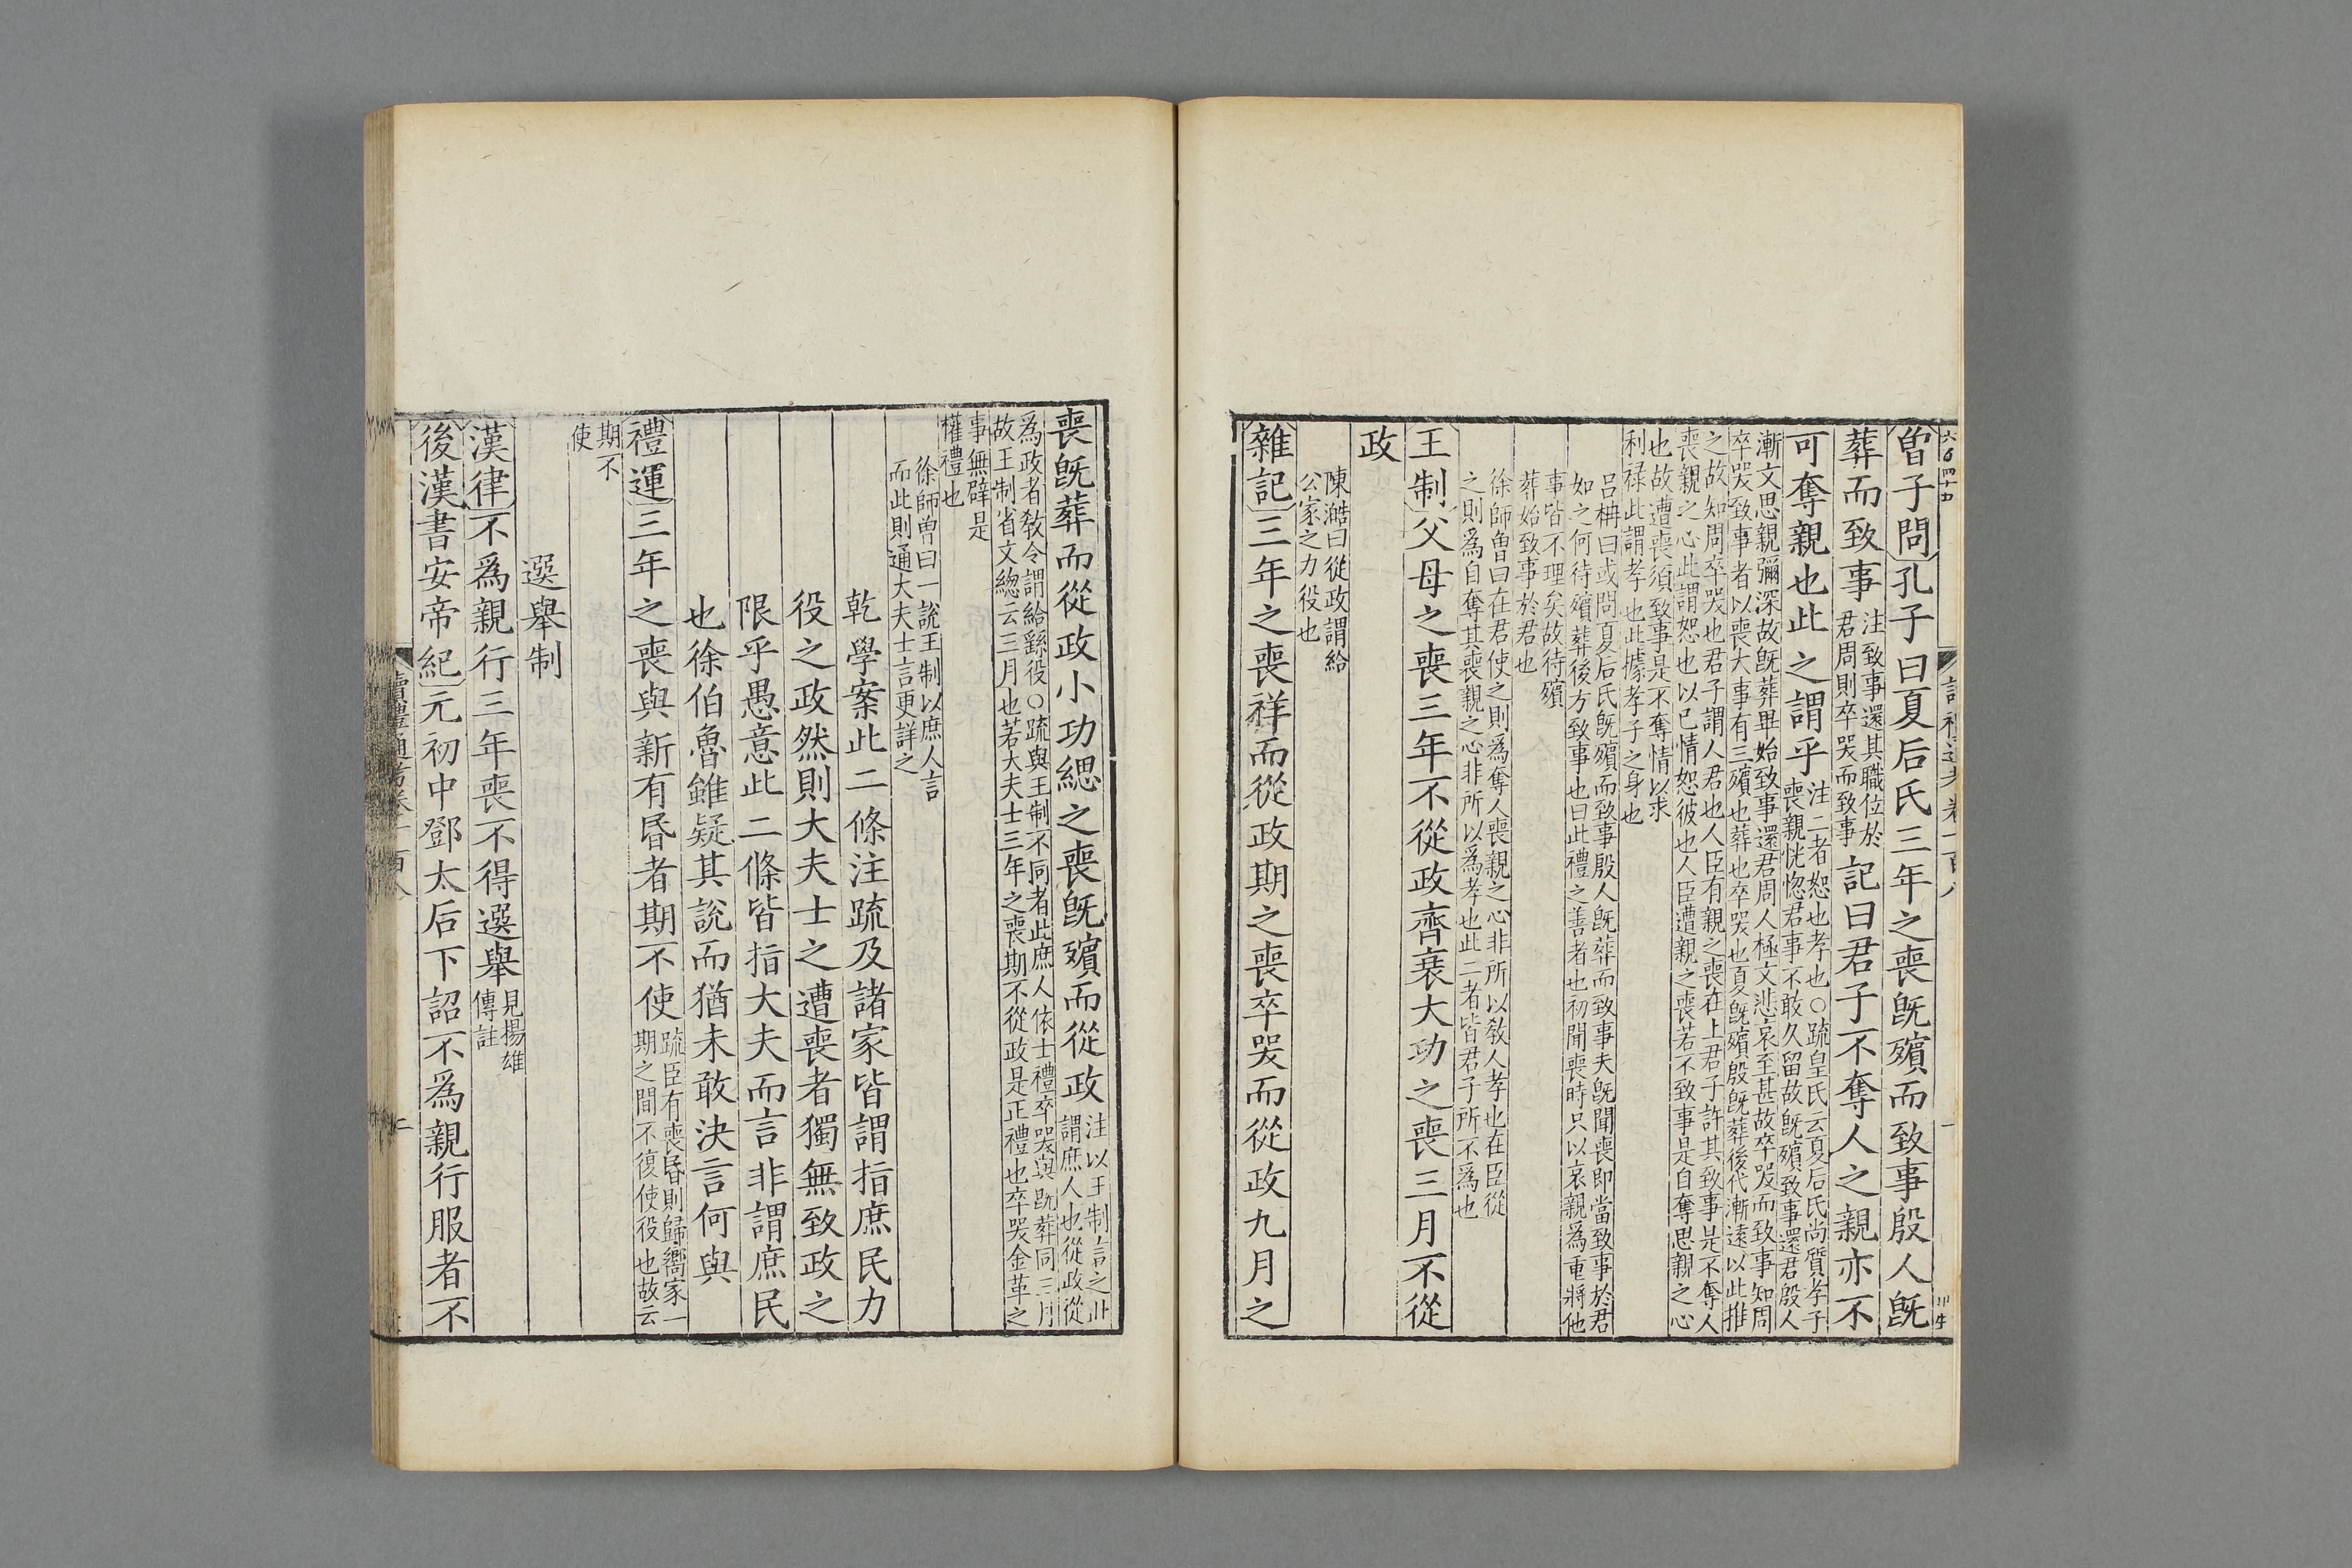 曾子問孔子曰夏后氏三年之喪既殯而致事殷人既
葬而致事
注致事還其職位於
君周則卒哭而致事
記曰君子不奪人之親亦不
可奪親也此之謂乎
注二者恕也孝也○疏皇氏云夏后氏尚質孝子
喪親恍惚君事不敢久留故既殯致事還君殷人
漸文思親彌深故既葬畢始致事還君周人極文悲哀至甚故卒哭而致事知周
卒哭致事者以喪大事有三殯也葬也卒哭也夏既殯殷既葬後代漸遠以此推
之故知周卒哭也君子謂人君也人臣有親之喪在上君子許其致事是不奪人
喪親之心此謂恕也以己情恕彼也人臣遭親之喪若不致事是自奪思親之心
也故遭喪須致事是不奪情以求
利祿此謂孝也此據孝子之身也
呂柟曰或問夏后氏既殯而致事殷人既葬而致事夫既聞喪即當致事於君
如之何待殯葬後方致事也曰此禮之善者也初聞喪時只以哀親為重將他
事皆不理矣故待殯
葬始致事於君也
徐師曾曰在君使之則為奪人喪親之心非所以教人孝也在臣從
之則為自奪其喪親之心非所以為孝也此二者皆君子所不為也
王制父母之喪三年不從政齊衰大功之喪三月不從
政
陳澔曰從政謂給
公家之力役也
雜記三年之喪祥而從政期之喪卒哭而從政九月之
喪既葬而從政小功緦之喪既殯而從政
注以王制言之此
謂庶人也從政從
為政者教令謂給繇役○疏與王制不同者此庶人依士禮卒哭與既葬同三月
故王制省文總云三月也若大夫士三年之喪期不從政是正禮也卒哭金革之
事無辟是
權禮也
徐師曾曰一說王制以庶人言
而此則通大夫士言更詳之
乾學案此二條注疏及諸家皆謂指庶民力
役之政然則大夫士之遭喪者獨無致政之
限乎愚意此二條皆指大夫而言非謂庶民
也徐伯魯雖疑其說而猶未敢決言何與
禮運三年之喪與新有昏者期不使
疏臣有喪昏則歸嚮家一
期之間不復使役也故云
期不
使
選舉制
漢律不為親行三年喪不得選舉
見揚雄
傳註
後漢書安帝紀元初中鄧太后下詔不為親行服者不